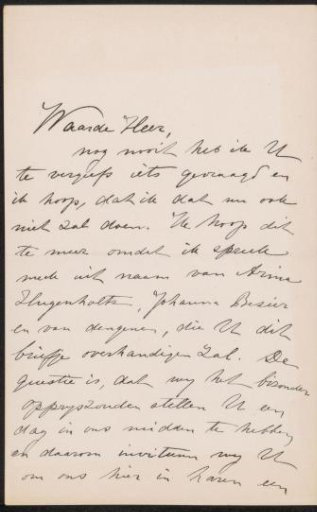 Waarde Heer,
nog nooit heb ik U
te vergeefs iets gevraagd en
ik hoop, dat ik dat nu ook
niet zal doen. Ik hoop dit
te meer omdat ik spreek
mede uit naam van Anna
Hugenholtz, Johanna Besier
en van dengene, die U dit
briefje overhandigen zal. De
questie is, dat wy het bizonder
op prys zouden stellen U een
dag in ons midden te hebben
en daarom inviteeren wy U
om ons hier in Laren een